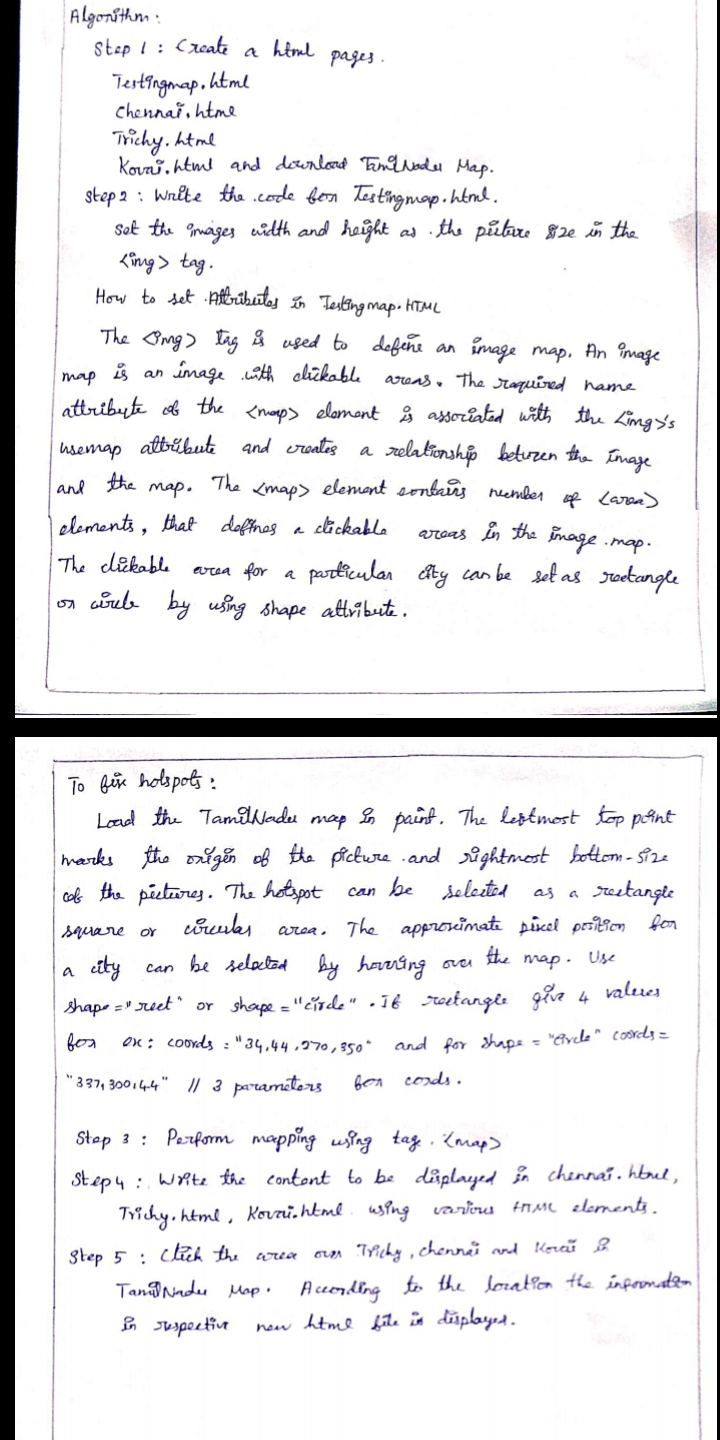 Algorithm:
Step 1 : Create a html pages.
Testingmap.html
Chennai.html
Trichy.html
Kovai.html and download TamilNadu Map.
Step 2 : Write the code for Testingmap.html.
Set the images width and height as the picture size in the
<img> tag.
How to set Attributes in Testingmap.HTML
The <img> tag is used to define an image map. An image
map is an image with clickable areas. The required name
attribute of the <map> element is associated with the <img>'s
usemap attribute and creates a relationship between the image
and the map. The <map> element contains number of <area>
elements, that defines a clickable areas in the image map.
The clickable area for a particular city can be set as rectangle
or circle by using shape attribute.
To fix hotspots :
Load the TamilNadu map in paint. The leftmost top point
marks the origin of the picture and rightmost bottom-size
of the pictures. The hotspot can be selected as a rectangle
square or circular area. The approximate pixel position for
a city can be selected by hovering over the map. Use
shape="rect" or shape="circle". If rectangle give 4 values
for ex: coords : "34,44,270,350" and for shape = "circle" coords=
"337,300,44" // 3 parameters for cords.
Step 3 : Perform mapping using tag. <map>
Step 4 : Write the content to be displayed in chennai.html,
Trichy.html, Kovai.html using various HTML elements.
Step 5 : Click the area over Trichy, chennai and Kovai in
TamilNadu Map. According to the location the information
in respective new html file is displayed.